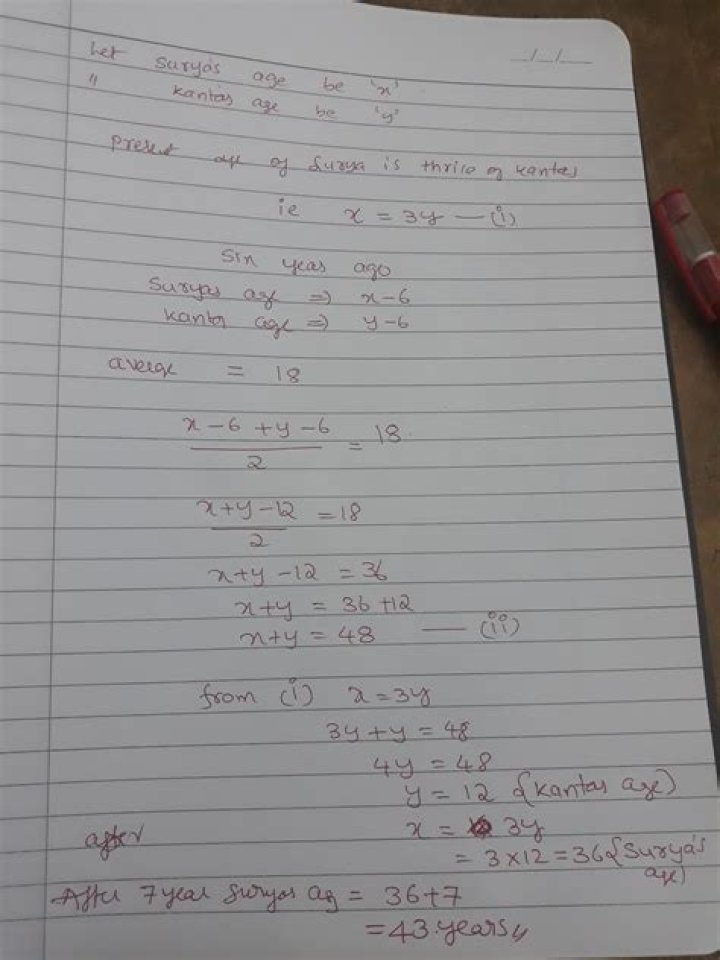 Let Surya's age be 'x'
" Kanta's age be 'y'
Present age of Surya is thrice of Kantas
ie x = 3y — (i)
Six years ago
Suryas age ⇒ x-6
Kantas age ⇒ y-6
average = 18
x-6+y-6 / 2 = 18
x+y-12 / 2 = 18
x+y-12 = 36
x+y = 36+12
x+y = 48 — (ii)
from (i) x=3y
3y+y = 48
4y = 48
y = 12 {Kantas age}
x = 3y
after
= 3×12 = 36 {Surya's age}
After 7 year Suryas ag = 36+7
= 43 years